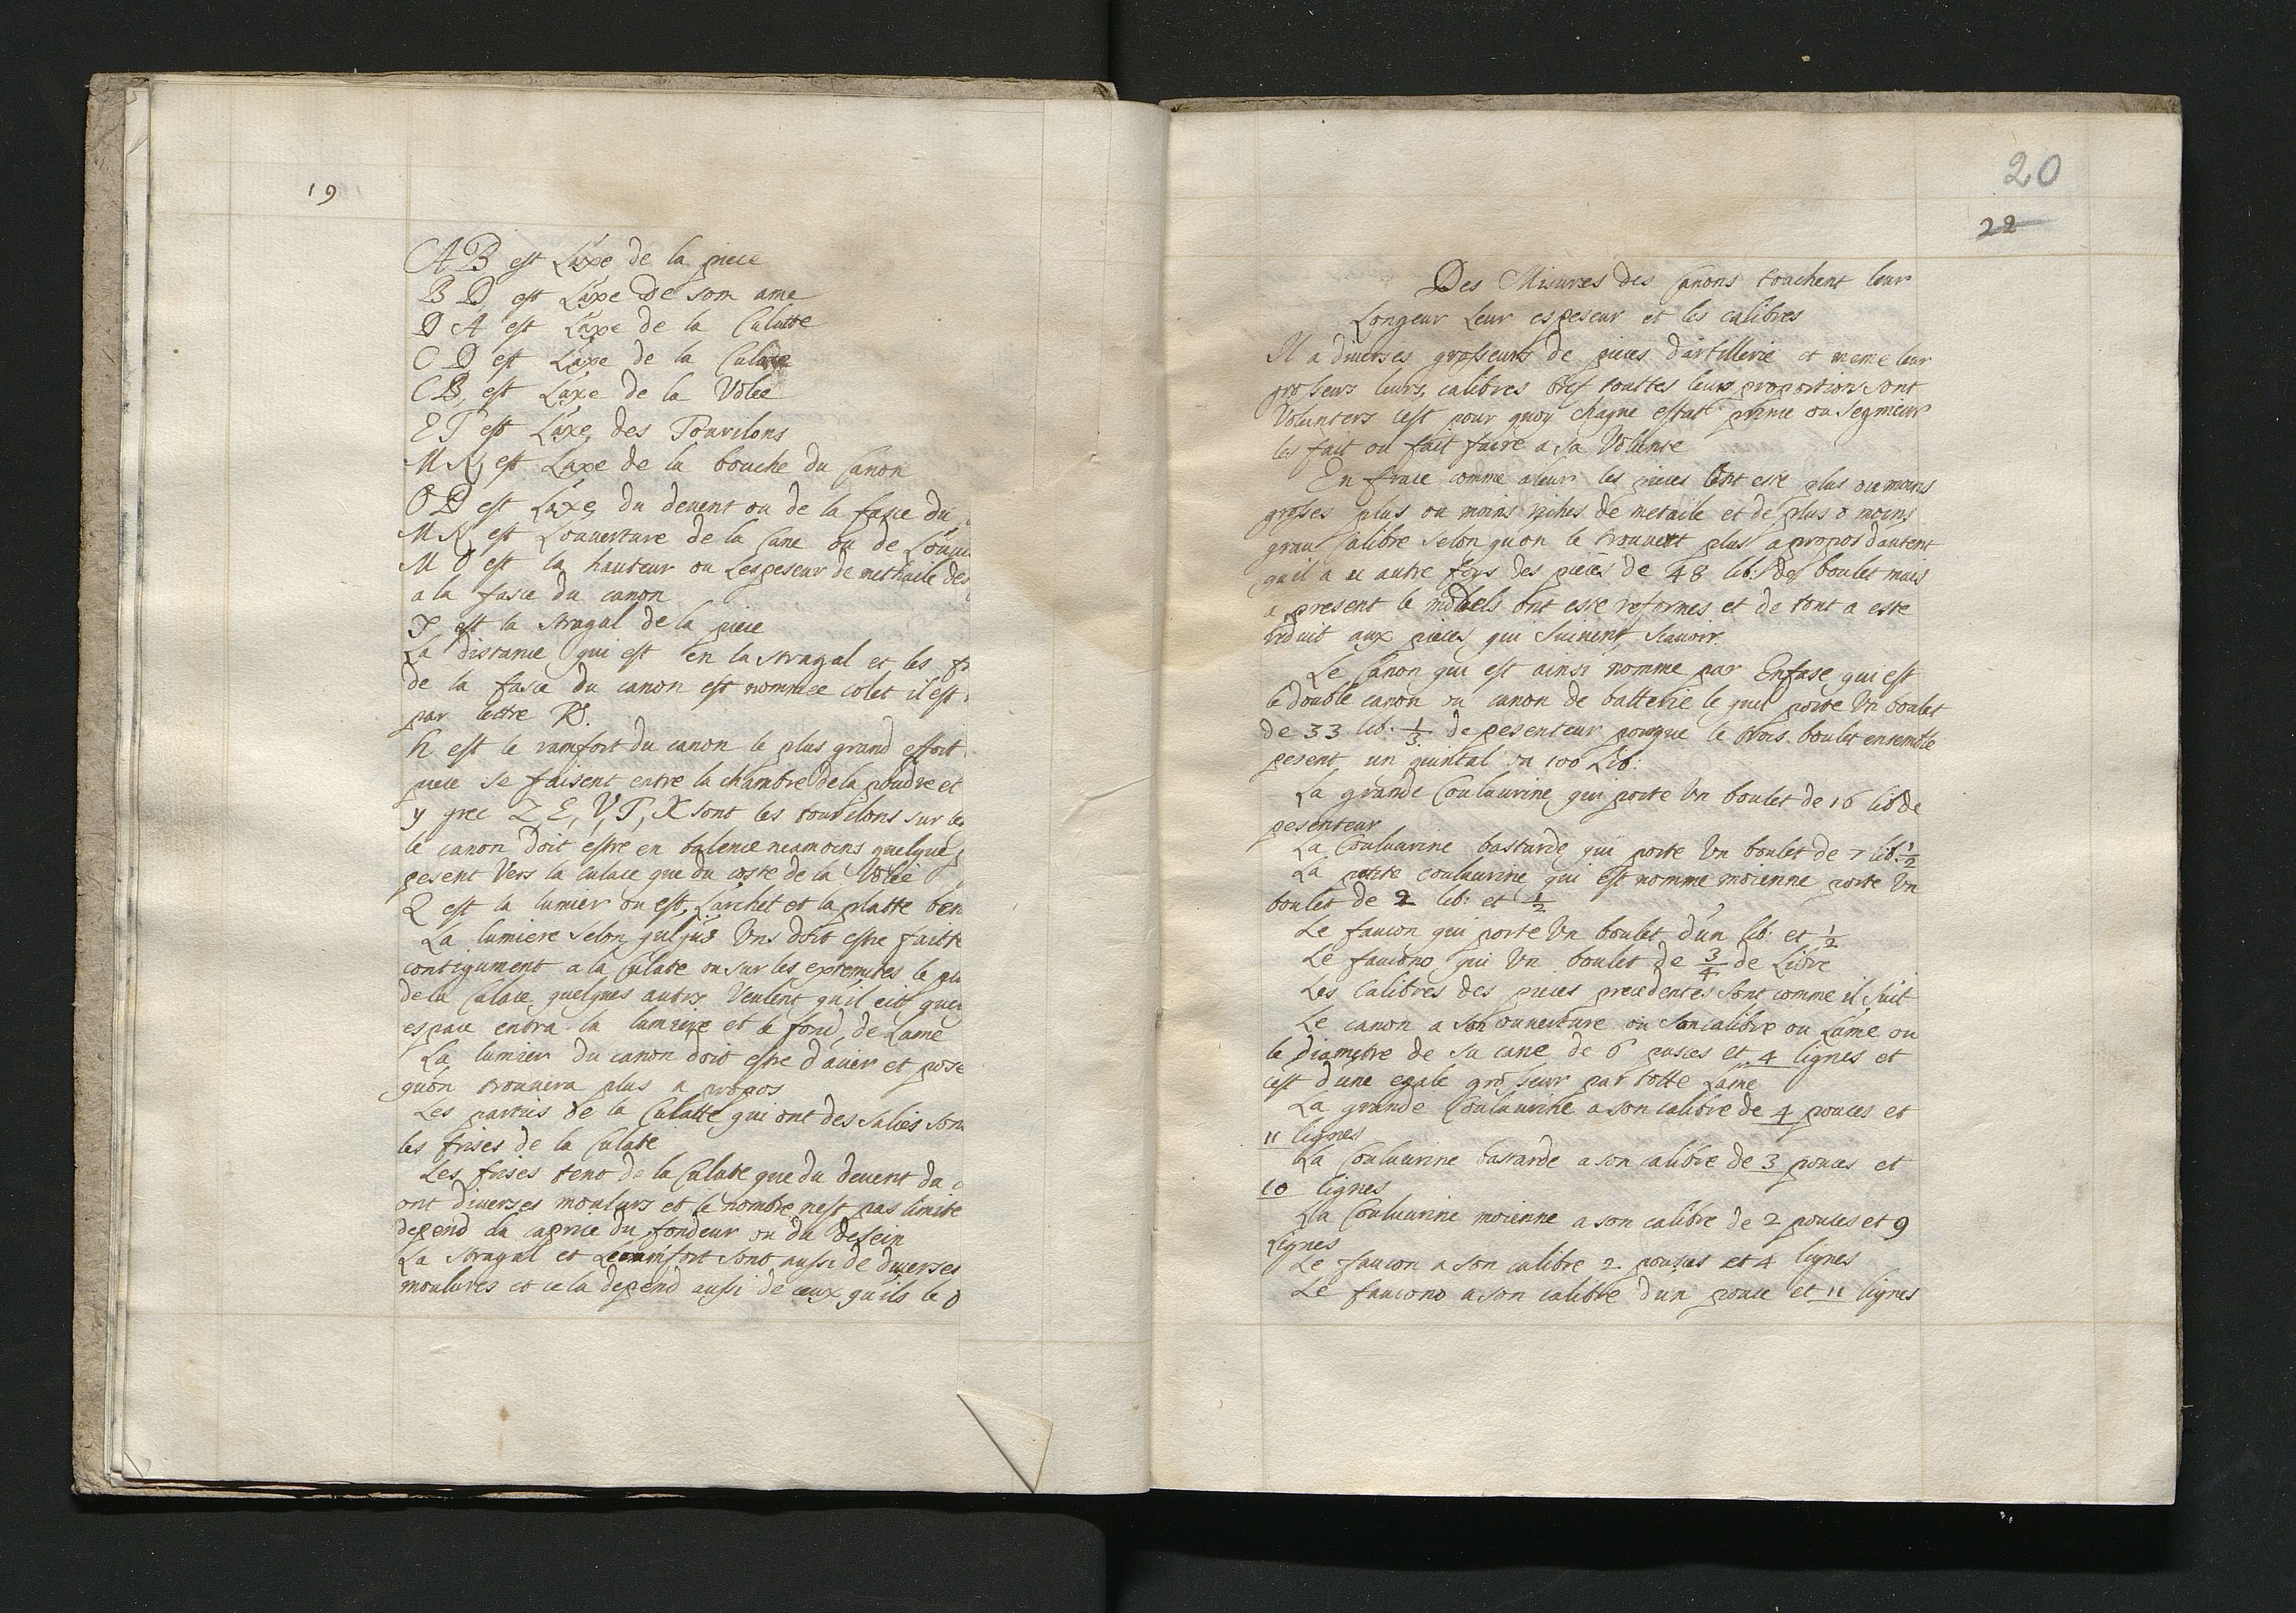 19
AB est Laxe de la piece
BD est Laxe de som ame
DA est Laxe de la Culatte
CD est Laxe de la Culate
CB, est Laxe de la Volee
ET est Laxe, des Tourilons
MN, est Laxe de la bouche du Canon
OP est Laxe, du devent ou de la fasce du
MN, est Louuerture de la Cane ou de
MO est la hauteur ou Lespeseur de methaile des
a la fasce du canon
est la stragal de la piece
La distance qui est en la stragal et les
de la fasce du canon est nommee colet il est
par lettre
h est le ramfort du canon le plus grand effort
piece se faisent entre la chambre de la poudre et
y grec Z, E, V, T, X sont les tourilons sur les
le canon doit estre en balence neamoins quelque
pesent Vers la culace que du coste de la Volée
Q est la lumier ou est, Larchet et la platte
La lumiere selon quelqus Uns doit estre faitte
contigument a la Culate ou sur les extremites le
de la Culace, quelques autre Veulent qu'il eit
espace entra la lumiere et le fond, de Lame
La lumier du canon doit estre d'acier et pose
qu'on trouuera plus a propos
Les parties de la Culatte qui ont des salies
les frises de la Culate
Les frises tent de la Culate que du devent du
ont diverses moulurs et le nombre nest pas limite
depend da caprice du fondeur ou du desein
La stragal et Leramfort sont aussi de diverses
moulures et cela depend aussi de ceux quils le
20
22
Des Misures des Canons touchent leur
Longeur Leur espeseur et les calibres
Il a diverses grosseurs de pieces d'artillerie et meme leur
groseurs leurs, calibres bref touttes leurs proportions sont
Volunters cest pour quoy chaque estat prince ou Segnieur
les fait ou fait faire a sa Volunte
En france comme aleur les pieces ont este plus ou moins
grosses plus ou moins riches de metaile et de plus o moins
gran Calibre selon quon le trouuoit plus apropos dautent
quil a eu autre foys des pieces de 48 lib: de boulet mais
a present le models ont este reformes et de tout a este
reduit aux pieces, qui Suivent, scavoir.
Le Canon qui est ainsi nomme par Enfase qui est
le double canon ou canon de batterie le quel porte Un boulet
de 33 lib: 1/3. de pesenteur porque le trois boulet ensemble
pesent un quintal ou 100 Lib:
La grande Couluurine, qui porte Un boulet de 16 lib de
pesenteur
La Couluurine bastarde, qui porte Un boulet de 7 lib: 1/2
La petite couluurine, qui est nomme moienne porte Un
boulet de 2 lib: et 1/2
Le faucon qui porte Un boulet d'un lib: et 1/2
Le faucono qui Un boulet de 3/4 de Livre
Les Calibres des pieces precedentes sont comme il suit
Le canon a son ouuerture ou son calibre ou Lame ou
le diametre de sa cane de 6 pusces et 4 lignes et
cest d'une egale grosseur par totte Lame
La grande Couluurine a son calibre de 4 pouces et
11 lignes
La Couluurine bastarde a son calibre de 3 pouces et
10 lignes
La Couluurine moienne a son calibre de 2 pouces et 9
Lignes
Le faucon a son calibre 2 pouses et 4 lignes
Le faucono a son calibre d'un pouce et 11 lignes